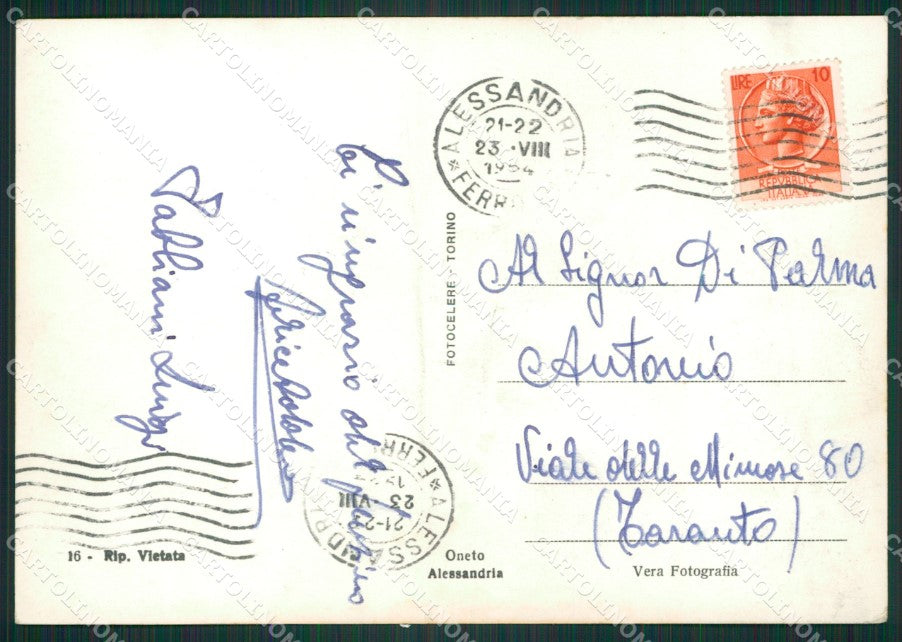 Fabbiani Luigi
La ringrazio del
16 - Rip. Vietata
FOTOCELERE - TORINO
Oneto
Alessandria
ALESSANDRIA
21-22
23 · VIII
1954
* FERR
LIRE 10
REPVBBLICA
ITALIANA
Al Signor Di Palma
Antonio
Viale delle Mimose 80
(Taranto)
Vera Fotografia
ALESSANDRIA
21-22
23 · VIII
FERR
CARTOLINOMANIA